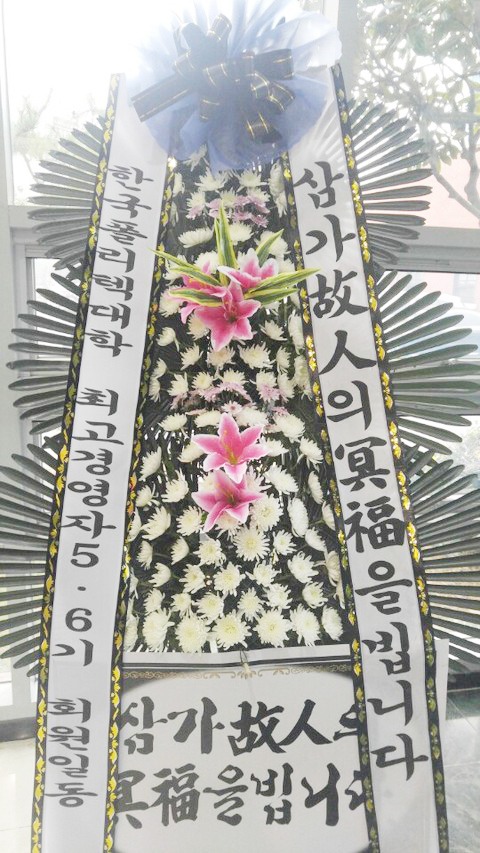 삼가故人의冥福을빕니다
한국폴리텍대학 최고경영자5·6기 회원일동
삼가故人의
冥福을빕니다